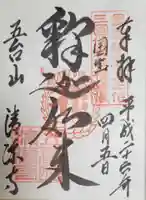 奉拝 平成二十六年
四月五日
国宝
釈迦如来
五台山
清凉寺